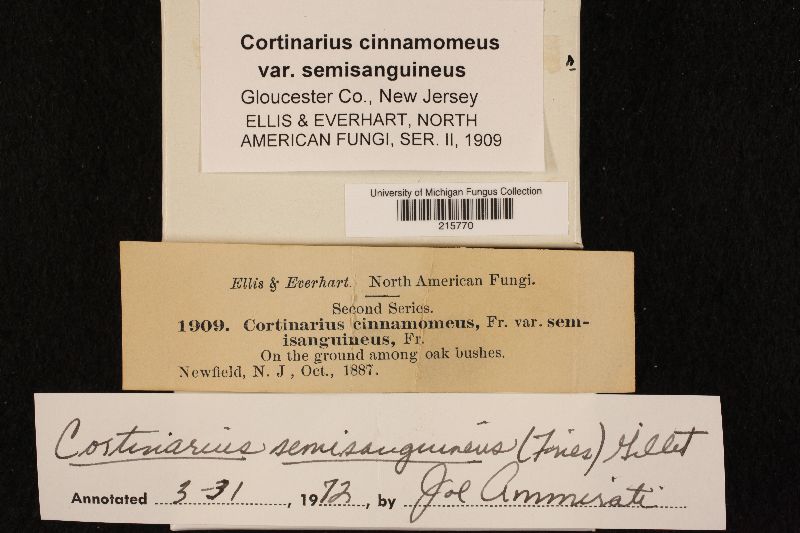 Cortinarius cinnamomeus
var. semisanguineus
Gloucester Co., New Jersey
ELLIS & EVERHART, NORTH
AMERICAN FUNGI, SER. II, 1909
University of Michigan Fungus Collection
215770
Ellis & Everhart. North American Fungi.
Second Series.
1909. Cortinarius cinnamomeus, Fr. var. sem-
isanguineus, Fr.
On the ground among oak bushes.
Newfield, N. J , Oct., 1887.
Cortinarius semisanguineus (Fries) Gillet
Annotated 3-31, 1972, by Joe Ammirati